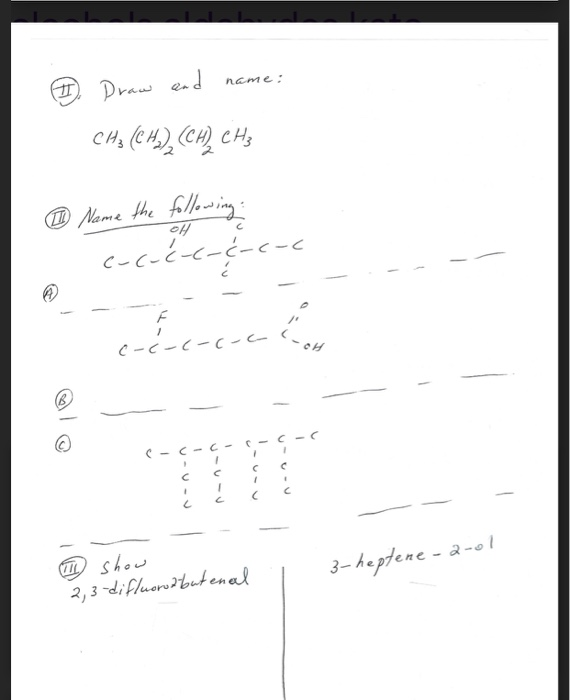 II. Draw and name:
CH3 (CH2)2 (CH)2 CH3
III Name the following:
OH C
C-C-C-C-C-C-C
C
A
F O
C-C-C-C-C- C
OH
B
C
C-C-C-C-C-C
C C C C
C C C C
III Show
2,3-difluoro2butenal
3-heptene-2-ol